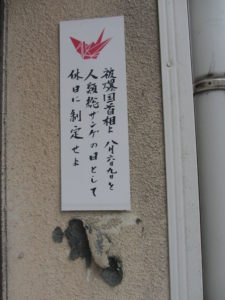 被爆国首相よ 八月六九日を
人類総ザンゲの日として
休日に制定せよ